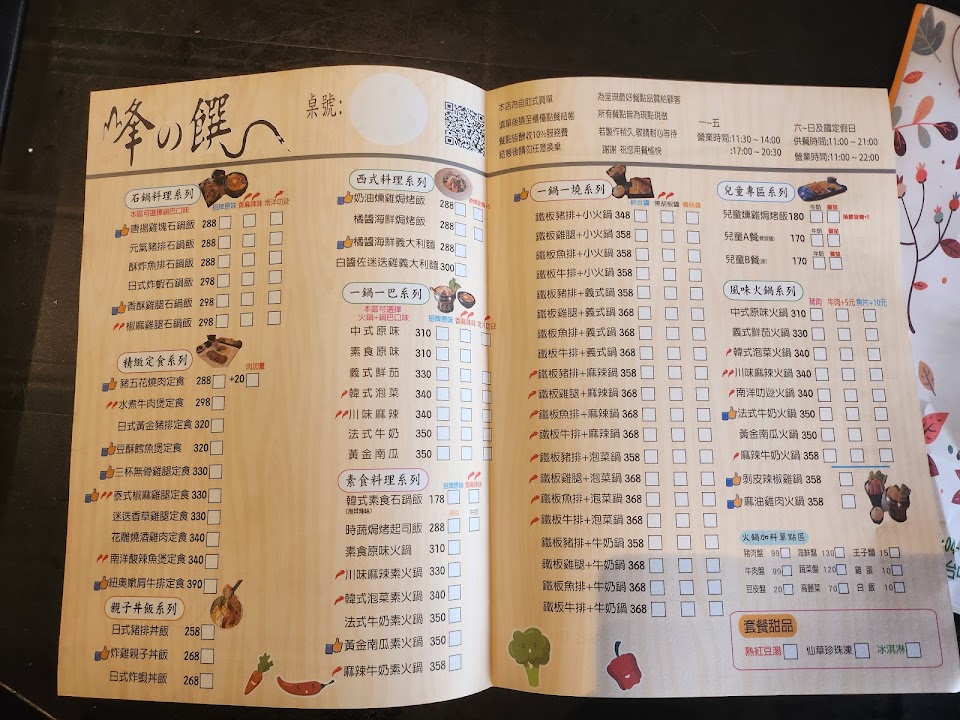 峰の饌
桌號:
石鍋料理系列
本區可選擇鍋巴口味
招牌原味 香麻辣味 南洋叻沙
唐揚雞塊石鍋飯 288
元氣豬排石鍋飯 288
酥炸魚排石鍋飯 288
日式炸蝦石鍋飯 298
香酥雞腿石鍋飯 298
椒麻雞腿石鍋飯 298
精緻定食系列
肉加量
豬五花燒肉定食 288 +20
水煮牛肉煲定食 298
日式黃金豬排定食 320
豆酥鱈魚煲定食 320
三杯無骨雞腿定食 330
泰式椒麻雞腿定食 330
迷迭香草雞腿定食 330
花雕燒酒雞肉定食 340
南洋酸辣魚煲定食 340
紐奧嫩肩牛排定食 390
親子丼飯系列
日式豬排丼飯 258
炸雞親子丼飯 268
日式炸蝦丼飯 268
西式料理系列
奶油燻雞焗烤飯 288
橘醬海鮮焗烤飯 288
橘醬海鮮義大利麵 288
白醬佐迷迭雞義大利麵 300
一鍋一巴系列
本區可選擇
火鍋+鍋巴口味
招牌原味 香麻辣味 南洋叻沙
中式原味 310
素食原味 310
義式鮮茄 330
韓式泡菜 340
川味麻辣 340
法式牛奶 350
黃金南瓜 350
素食料理系列
招牌原味 香麻辣味
韓式素食石鍋飯 178
時蔬焗烤起司飯 288
南瓜 牛奶
素食原味火鍋 310
川味麻辣素火鍋 330
韓式泡菜素火鍋 340
法式牛奶素火鍋 350
黃金南瓜素火鍋 350
麻辣牛奶素火鍋 358
本店為自助式買單
填單後請至櫃檯點餐結帳
餐點酌收10%服務費
結帳後請勿任意換桌
為呈現最好餐點品質給顧客
所有餐點皆為現點現做
若製作稍久,敬請耐心等待
謝謝 祝您用餐愉快
一~五
營業時間:11:30 ~ 14:00
:17:00 ~ 20:30
六~日及國定假日
供餐時間:11:00 ~ 21:00
營業時間:11:00 ~ 22:00
一鍋一燒系列
綜合醬 黑胡椒醬 蘑菇醬
鐵板豬排+小火鍋 348
鐵板雞腿+小火鍋 358
鐵板魚排+小火鍋 358
鐵板牛排+小火鍋 358
鐵板豬排+義式鍋 358
鐵板雞腿+義式鍋 368
鐵板魚排+義式鍋 368
鐵板牛排+義式鍋 368
鐵板豬排+麻辣鍋 358
鐵板雞腿+麻辣鍋 368
鐵板魚排+麻辣鍋 368
鐵板牛排+麻辣鍋 368
鐵板豬排+泡菜鍋 358
鐵板雞腿+泡菜鍋 368
鐵板魚排+泡菜鍋 368
鐵板牛排+泡菜鍋 368
鐵板豬排+牛奶鍋 358
鐵板雞腿+牛奶鍋 368
鐵板魚排+牛奶鍋 368
鐵板牛排+牛奶鍋 368
兒童專區系列
牛奶 蕃茄
兒童燻雞焗烤飯 180
兒童A餐 170
兒童B餐 170
風味火鍋系列
豬肉 牛肉+5元 魚片+10元
中式原味火鍋 310
義式鮮茄火鍋 330
韓式泡菜火鍋 340
川味麻辣火鍋 340
南洋叻沙火鍋 340
法式牛奶火鍋 350
黃金南瓜火鍋 350
麻辣牛奶火鍋 358
剝皮辣椒雞鍋 358
麻油雞肉火鍋 358
火鍋加料單點區
豬肉盤 99 海鮮盤 130 王子麵 15
牛肉盤 99 蔬菜盤 120 雞蛋 10
豆皮盤 20 高麗菜 70 白飯 10
套餐甜品
熱紅豆湯 仙草珍珠凍 冰淇淋